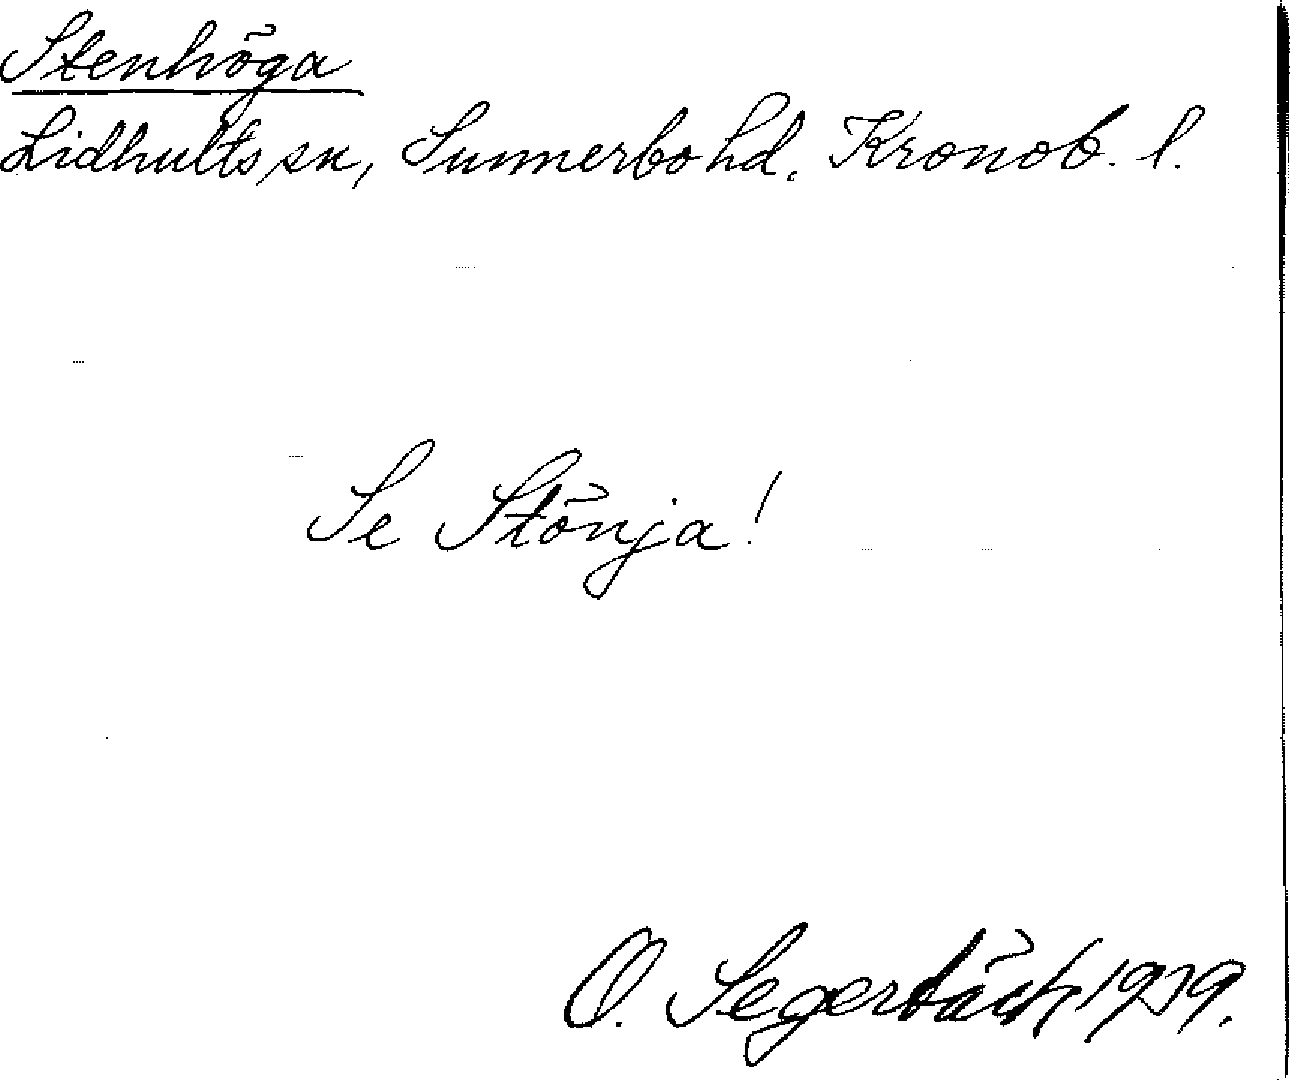 Stenhöga
Lidhults sn, Sunnerbo hd. Kronob. l.
Se Stönja!
O. Segerbäck 1939.